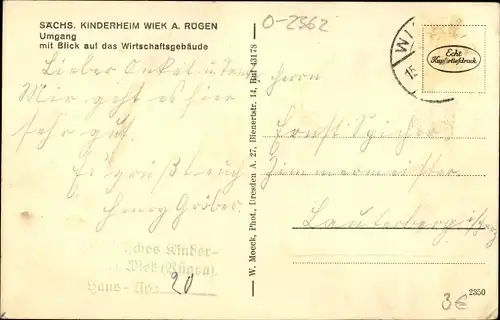 SÄCHS. KINDERHEIM WIEK A. RÜGEN
Umgang
mit Blick auf das Wirtschaftsgebäude
O-2362
Lieber Onkel u. Tante,
Mir geht es hier
sehr gut.
Es grüßt euch
Georg
Kinder-
Wiek (Rügen),
Haus- 20
W. Moeck, Phot., Dresden A. 27, Bienertstr. 14, Ruf 43178
WI
15
Echt
Kupfertiefdruck
Herrn
Ernst Spicher
Zimmermeister
Lauterberg i/Harz
2350
3€